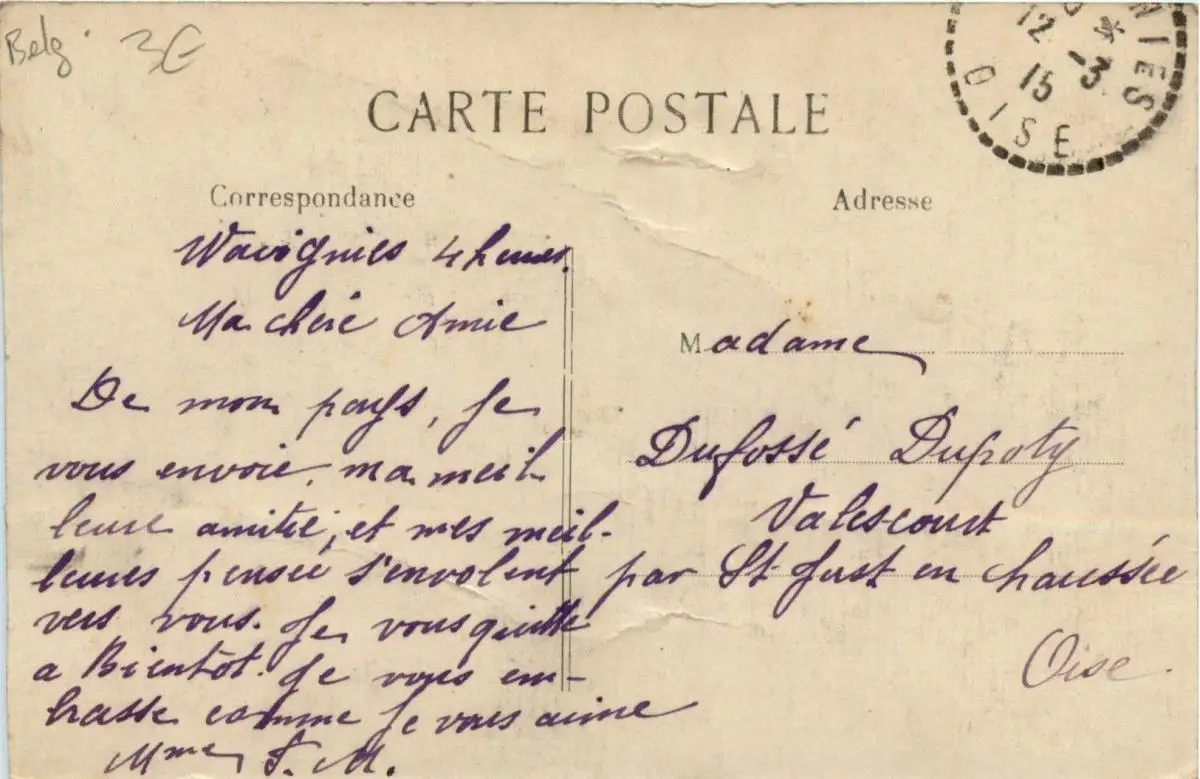 Belg. 3€
NIES
12 -3
15
OISE
CARTE POSTALE
Correspondance
Adresse
Wavignies 4 heures.
Ma chère Amie
De mon pays, Je
vous envoie, ma meil
leure amitié, et mes meil-
leures pensée s'envolent
vers vous. Je vous quitte
a Bientôt. Je vous em-
brasse comme Je vous aime
Mme F. M.
Madame
Dufossé Dupoty
Valescourt
par St Just en chaussée
Oise